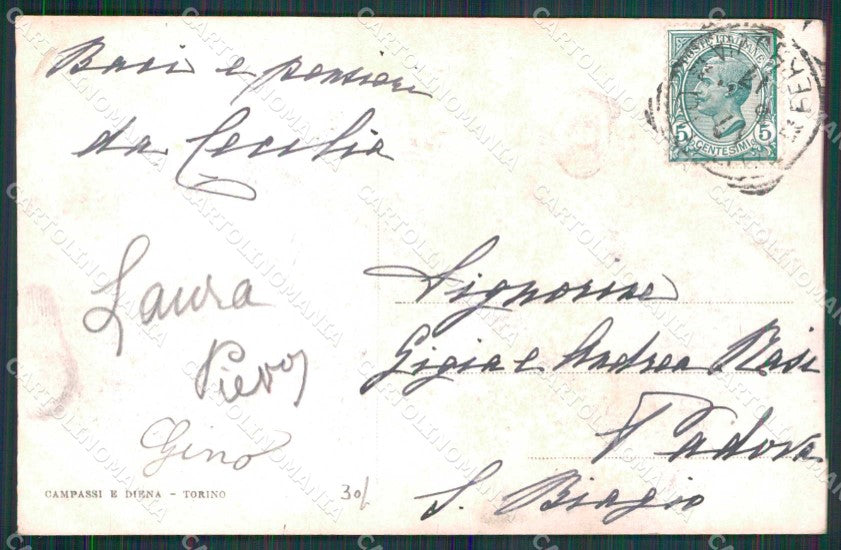 Baci e pensieri
da Cecilia
Laura
Piero
Gino
CAMPASSI E DIENA - TORINO
30/
POSTE ITALIANE
5 5
CENTESIMI
Signorine
Gigia e Andrea Rasi
Padova
S. Biagio
CARTOLINOMANIA